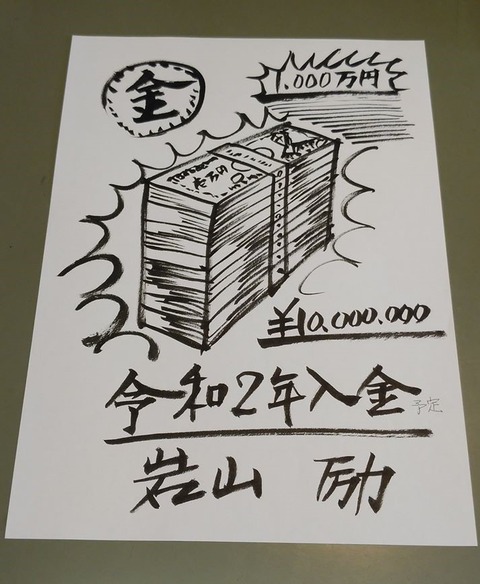 金
1.000万円
壱万円
¥10.000.000
令和2年入金予定
岩山 励